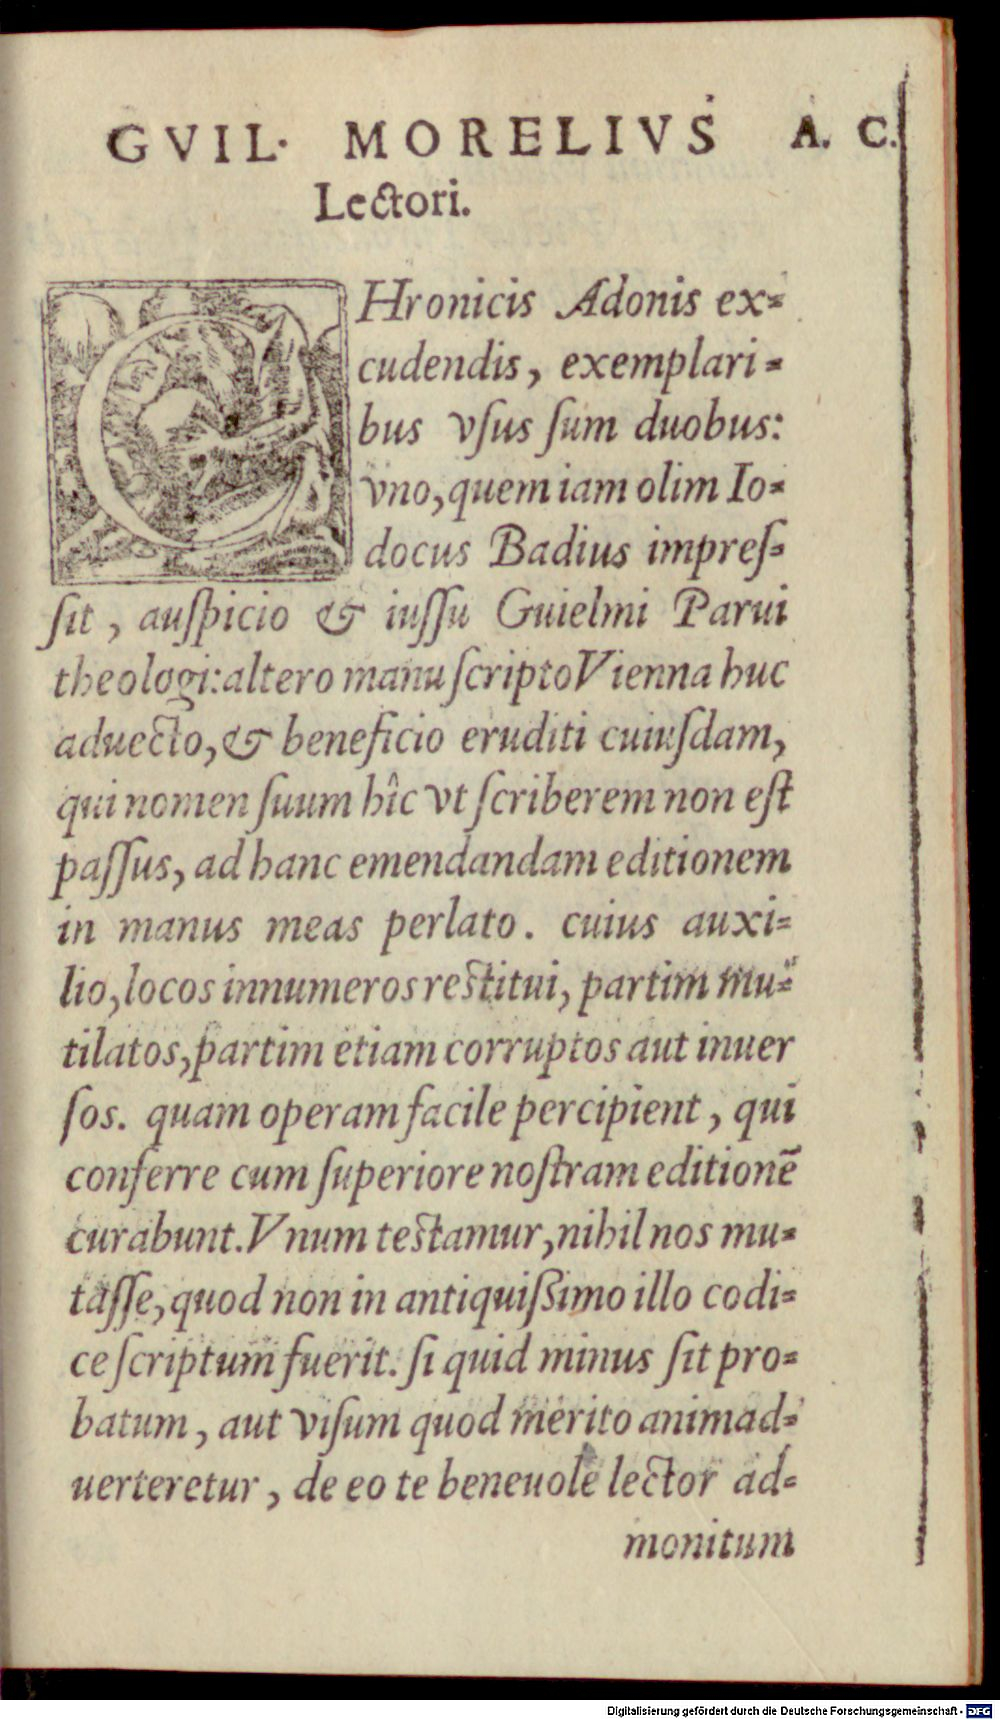 GVIL. MORELIVS A. C.
Lectori.
CHronicis Adonis ex-
cudendis, exemplari-
bus vſus ſum duobus:
vno, quem iam olim Io-
docus Badius impreſ-
ſit, auſpicio & iuſſu Guielmi Parui
theologi: altero manu ſcripto Vienna huc
aduecto, & beneficio eruditi cuiuſdam,
qui nomen ſuum hîc vt ſcriberem non eſt
paſſus, ad hanc emendandam editionem
in manus meas perlato. cuius auxi-
lio, locos innumeros reſtitui, partim mu-
tilatos, partim etiam corruptos aut inuer
ſos. quam operam facile percipient, qui
conferre cum ſuperiore noſtram editionē
curabunt. Vnum teſtamur, nihil nos mu-
taſſe, quod non in antiquiſsimo illo codi-
ce ſcriptum fuerit. ſi quid minus ſit pro-
batum, aut viſum quod merito animad-
uerteretur, de eo te beneuole lector ad-
monitum
Digitalisierung gefördert durch die Deutsche Forschungsgemeinschaft - DFG